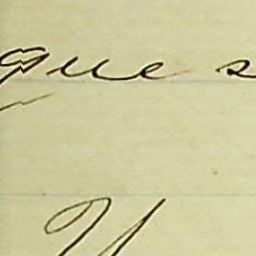 que s
Y